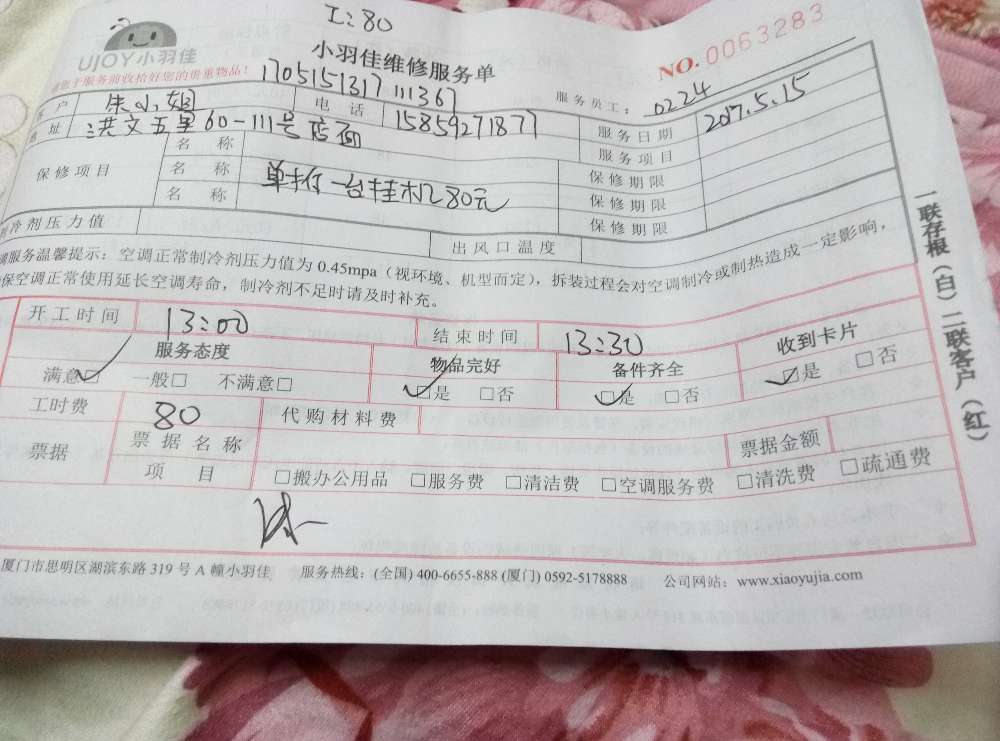 工:80
UJOY小羽佳
小羽佳维修服务单
NO.0063283
请您于服务前收拾好您的贵重物品!
1705151317111367
服务员工: 0224
客户 朱小姐 电话 15859271877 服务日期 2017.5.15
地址 洪文五里60-111号店面 服务项目
保修项目 名称 保修期限
名称 单拆一台挂机80元 保修期限
名称 保修期限
制冷剂压力值 出风口温度
服务温馨提示:空调正常制冷剂压力值为 0.45mpa(视环境、机型而定),拆装过程会对空调制冷或制热造成一定影响,
保空调正常使用延长空调寿命,制冷剂不足时请及时补充。
开工时间 13:00 结束时间 13:30
服务态度 物品完好 备件齐全 收到卡片
满意☑ 一般□ 不满意□ ☑是 □否 ☑是 □否 ☑是 □否
工时费 80 代购材料费
票据 票据名称 票据金额
项目 □搬办公用品 □服务费 □清洁费 □空调服务费 □清洗费 □疏通费
厦门市思明区湖滨东路 319 号 A 幢小羽佳 服务热线:(全国) 400-6655-888 (厦门) 0592-5178888 公司网站:www.xiaoyujia.com
一联存根(白)二联客户(红)